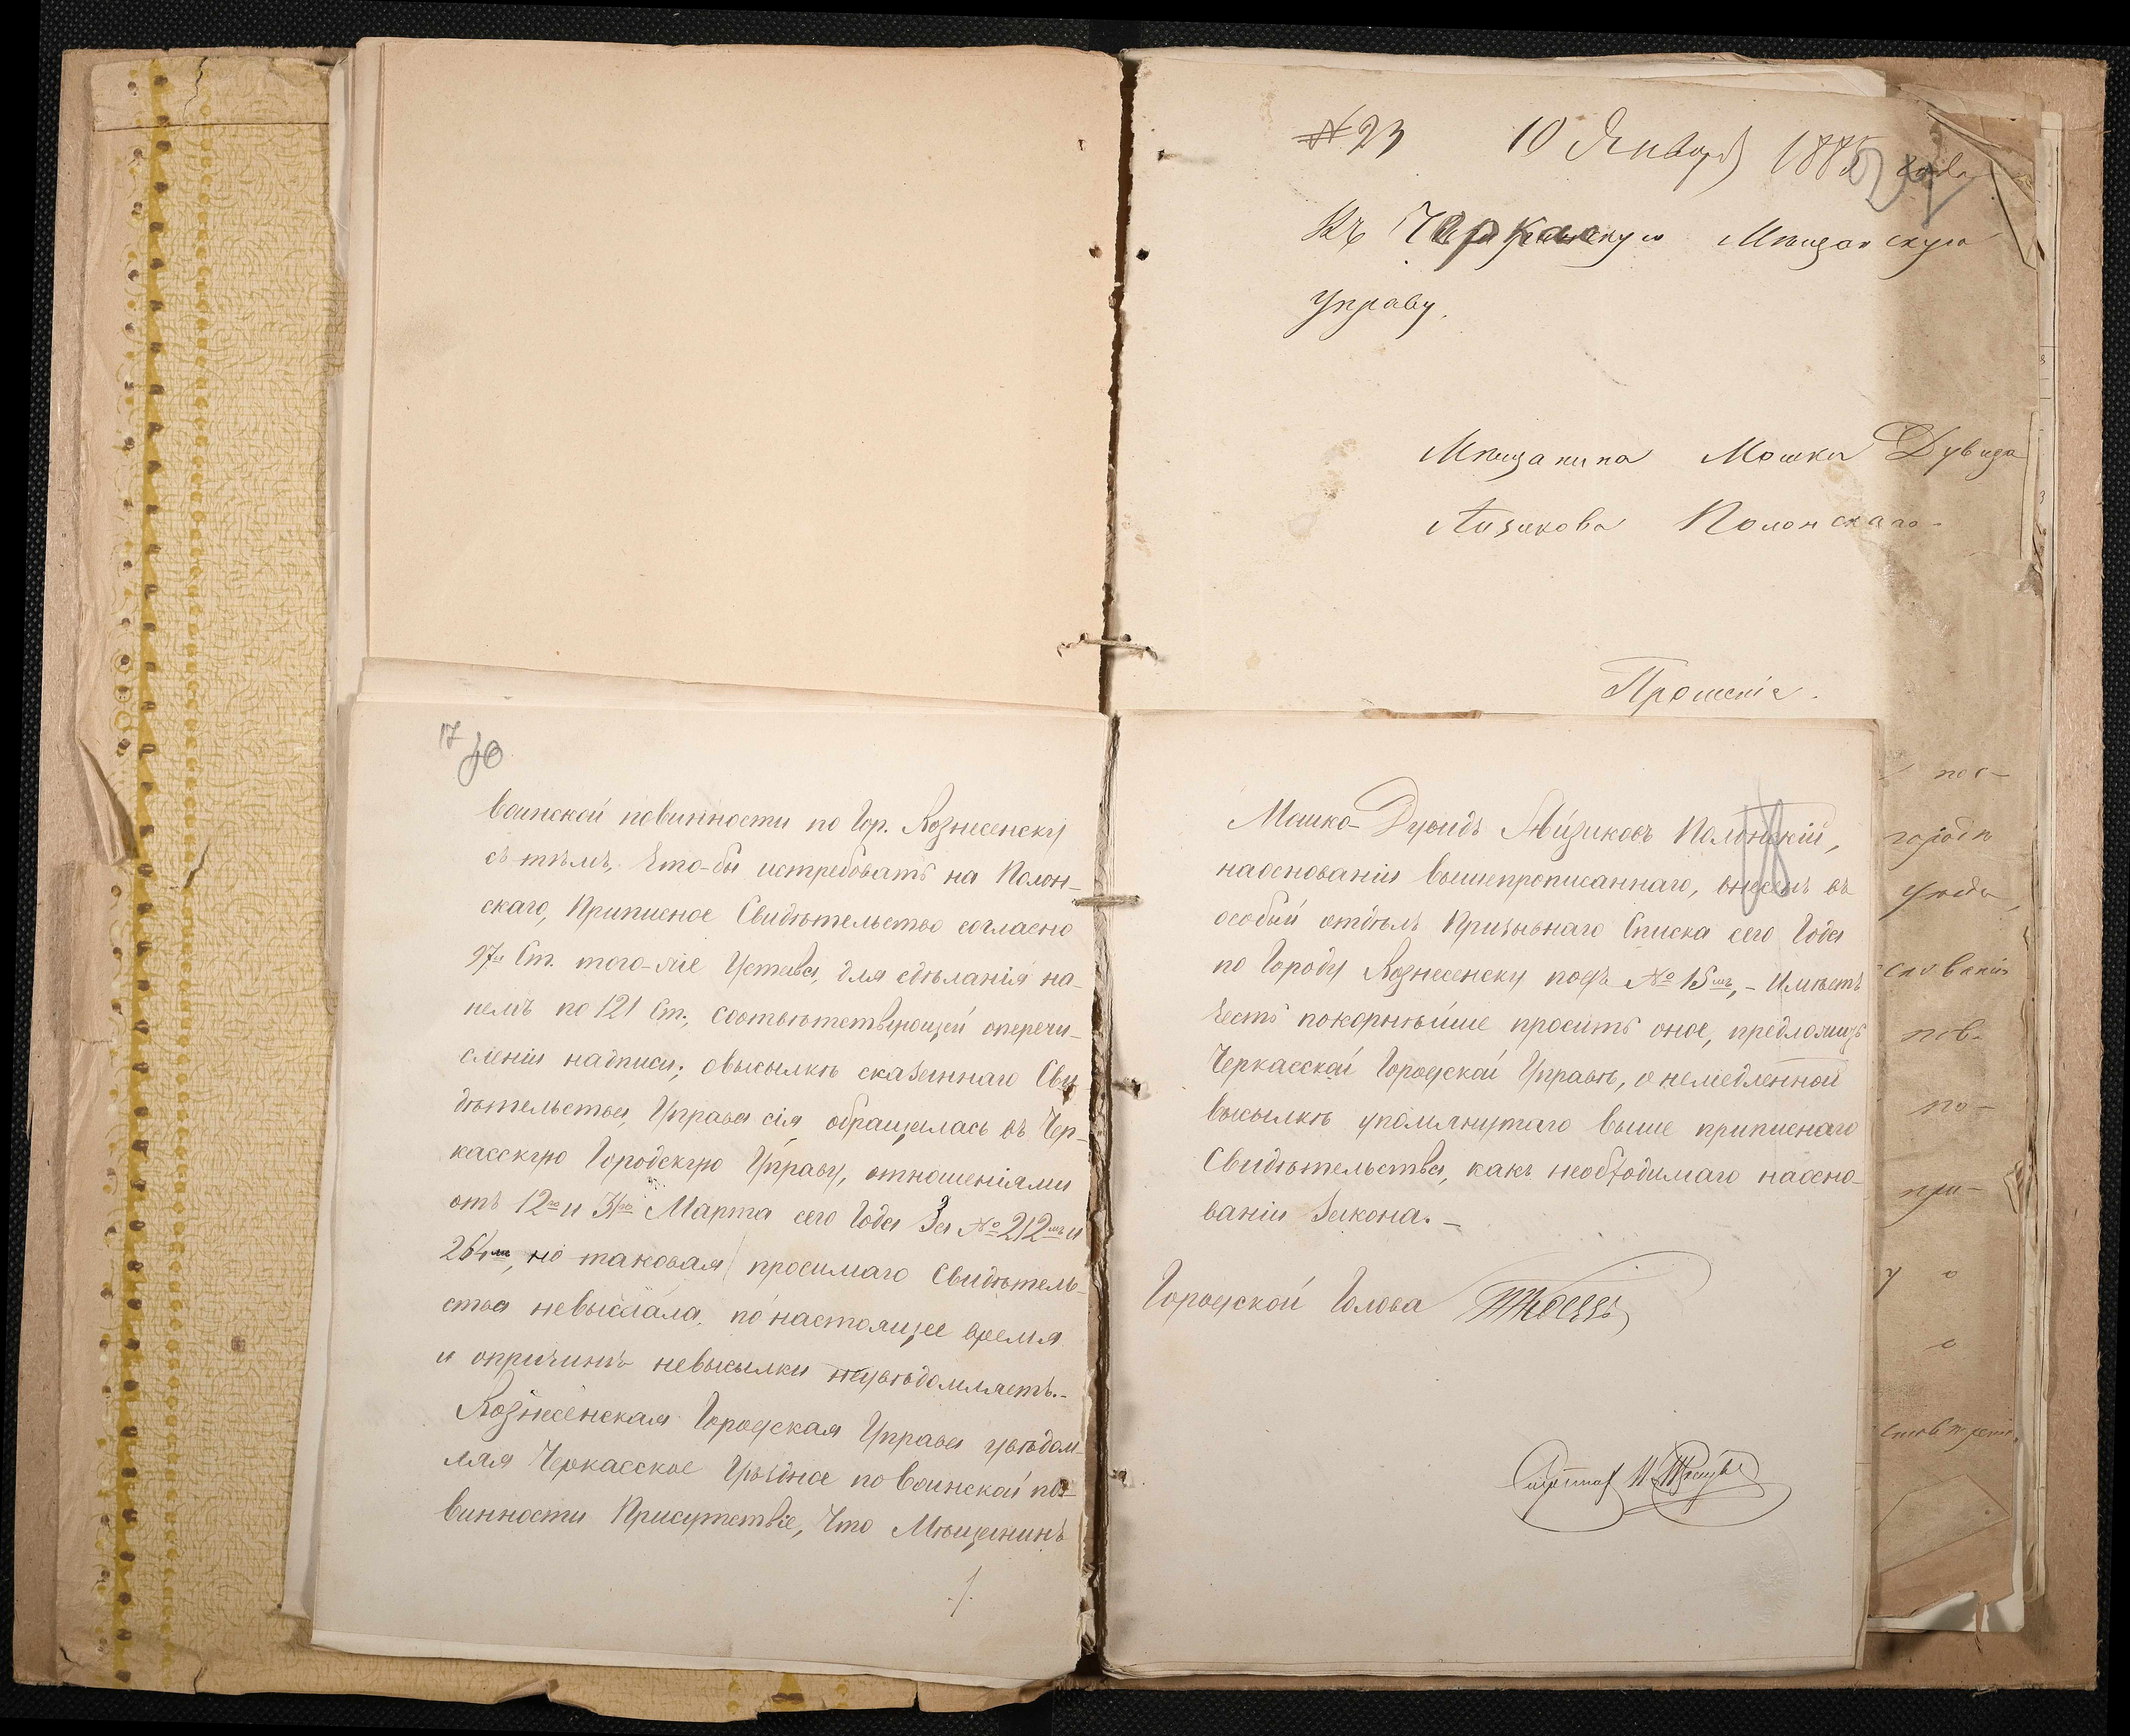 № 23 10 Января 1885 года
Въ Черкаскую Мещанскую
Управу.
Мещанина Мошки Дувида
Аизикова Полонскаго.
Прошеніе.
17
воинской повинности по Гор. Вознесенску
съ тѣмъ, что-бы истребовать на Полон-
скаго, Приписное Свидѣтельство согласно
97й Ст. того-же Устава, для сдѣланія на-
немъ по 121 Ст., соотвѣтствующей оперечи-
сленіи надписи; овысылкѣ сказаннаго Сви-
дѣтельства, Управа сія обращалась въ Чер-
касскую Городскую Управу, отношеніями
отъ 12го и 31го Марта сего Года За № 212мъ и
264мъ, но таковая просимаго Свидѣтель-
ства невыслала, по настоящее время
и опричинѣ невысылки неувѣдомляетъ.-
Вознесенская Городская Управа увѣдом-
ляя Черкасское Уѣздное по Воинской по-
винности Присутствіе, что Мѣщанинъ
Мошко-Дувидъ Айзиковъ Полонскій,
наоснованіи вышепрописаннаго, внесенъ въ
особый отдѣлъ Призывнаго Списка сего Года
по Городу Вознесенску подъ № 15мъ, - Имѣетъ
честь покорнѣйше просить оное, предложить
Черкасской Городской Управѣ, о немедленной
высылкѣ упомянутаго выше приписнаго
Свидѣтельства, какъ необходимаго наосно-
ваніи Закона. -
Городской Голова
пос-
городѣ
пов-
по-
при-
у о
о